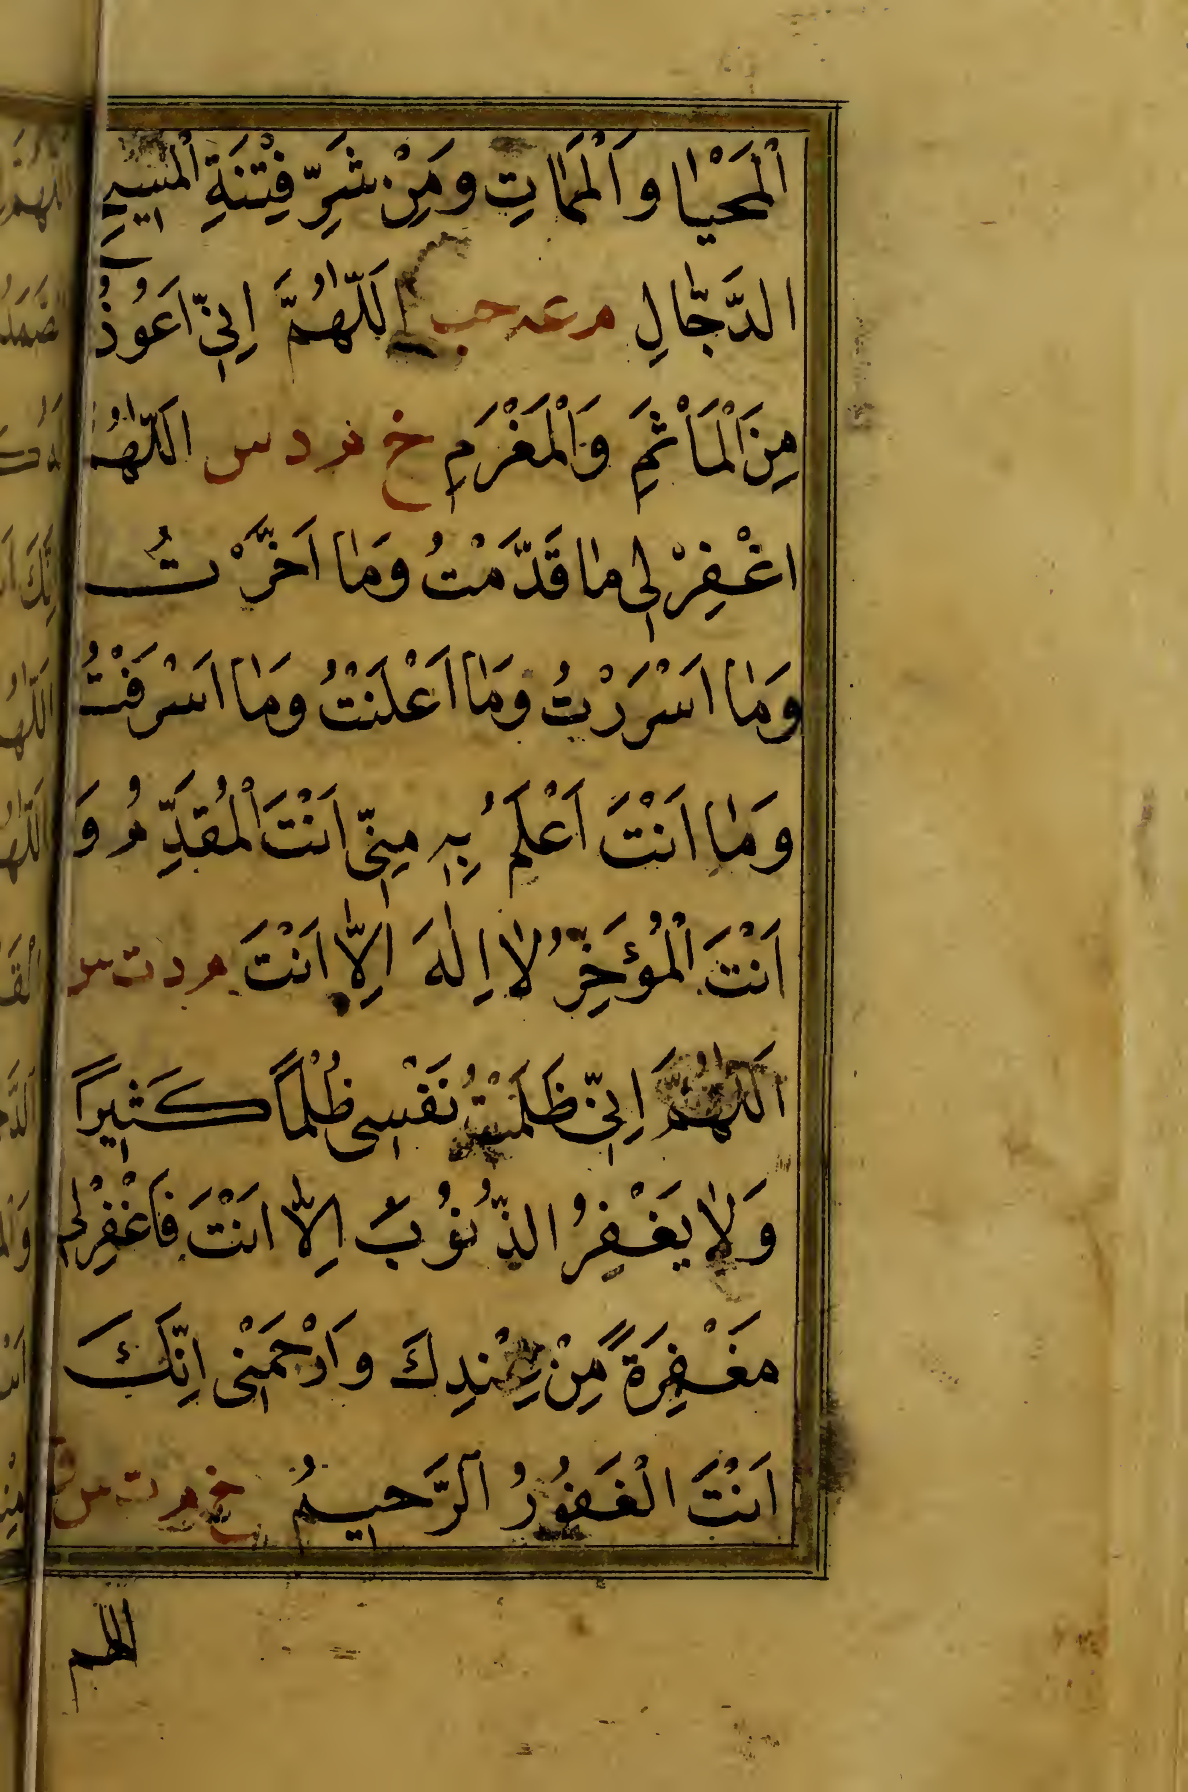 اَلْمَحْيَا وَالْمَمَاتِ وَمِنْ شَرِّ فِتْنَةِ الْمَسِيحِ
الدَّجَّالِ م عه حب اَللّٰهُمَّ اِنِّي اَعُوذُ
مِنَ الْمَأْثَمِ وَالْمَغْرَمِ خ م د س اَللّٰهُمَّ
اغْفِرْ لِي مَا قَدَّمْتُ وَمَا اَخَّرْتُ
وَمَا اَسْرَرْتُ وَمَا اَعْلَنْتُ وَمَا اَسْرَفْتُ
وَمَا اَنْتَ اَعْلَمُ بِهِ مِنِّي اَنْتَ الْمُقَدِّمُ وَ
اَنْتَ الْمُؤَخِّرُ لَا اِلٰهَ اِلَّا اَنْتَ م د ت س
اَللّٰهُمَّ اِنِّي ظَلَمْتُ نَفْسِي ظُلْمًا كَثِيرًا
وَلَا يَغْفِرُ الذُّنُوبَ اِلَّا اَنْتَ فَاغْفِرْ لِي
مَغْفِرَةً مِنْ عِنْدِكَ وَارْحَمْنِي اِنَّكَ
اَنْتَ الْغَفُورُ الرَّحِيمُ خ م ت س ق
اللهم